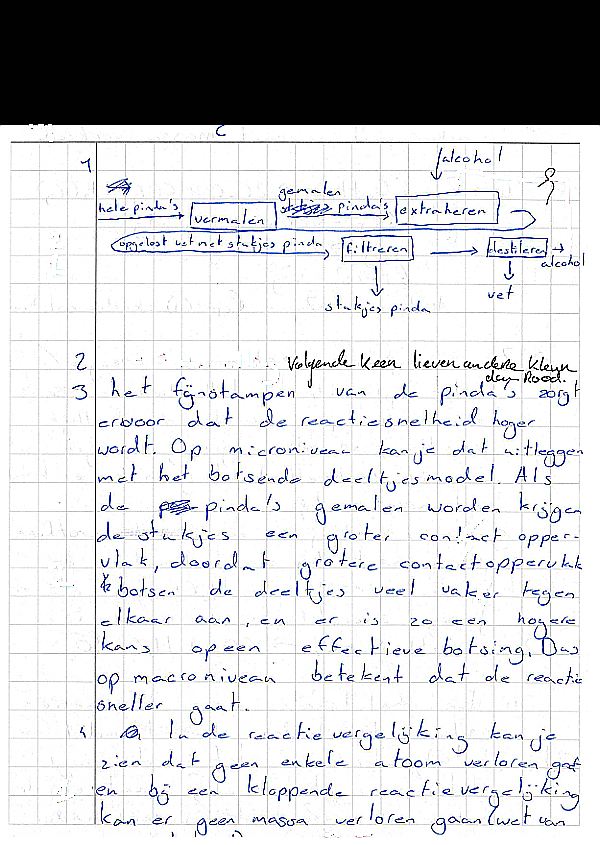 C
1
alcohol
gemalen
hele pinda's
vermalen
pinda's
extraheren
opgelost vet met stukjes pinda
filtreren
destileren
alcohol
vet
stukjes pinda
2
Volgende keer lieven andere kleur
dan Rood.
3 het fijnstampen van de pinda's zorgt
ervoor dat de reactiesnelheid hoger
wordt. Op microniveau kan je dat uitleggen
met het botsende deeltjesmodel. Als
de pinda's gemalen worden krijgen
de stukjes een groter contact opper-
vlak, doordat grotere contactoppervlak
botsen de deeltjes veel vaker tegen
elkaar aan, en er is zo een hogere
kans op een effectieve botsing. Dus
op macroniveau betekent dat de reactie
sneller gaat.
4 In de reactievergelijking kan je
zien dat geen enkele atoom verloren gat
en bij een kloppende reactievergelijking
kan er geen massa verloren gaan (wet van